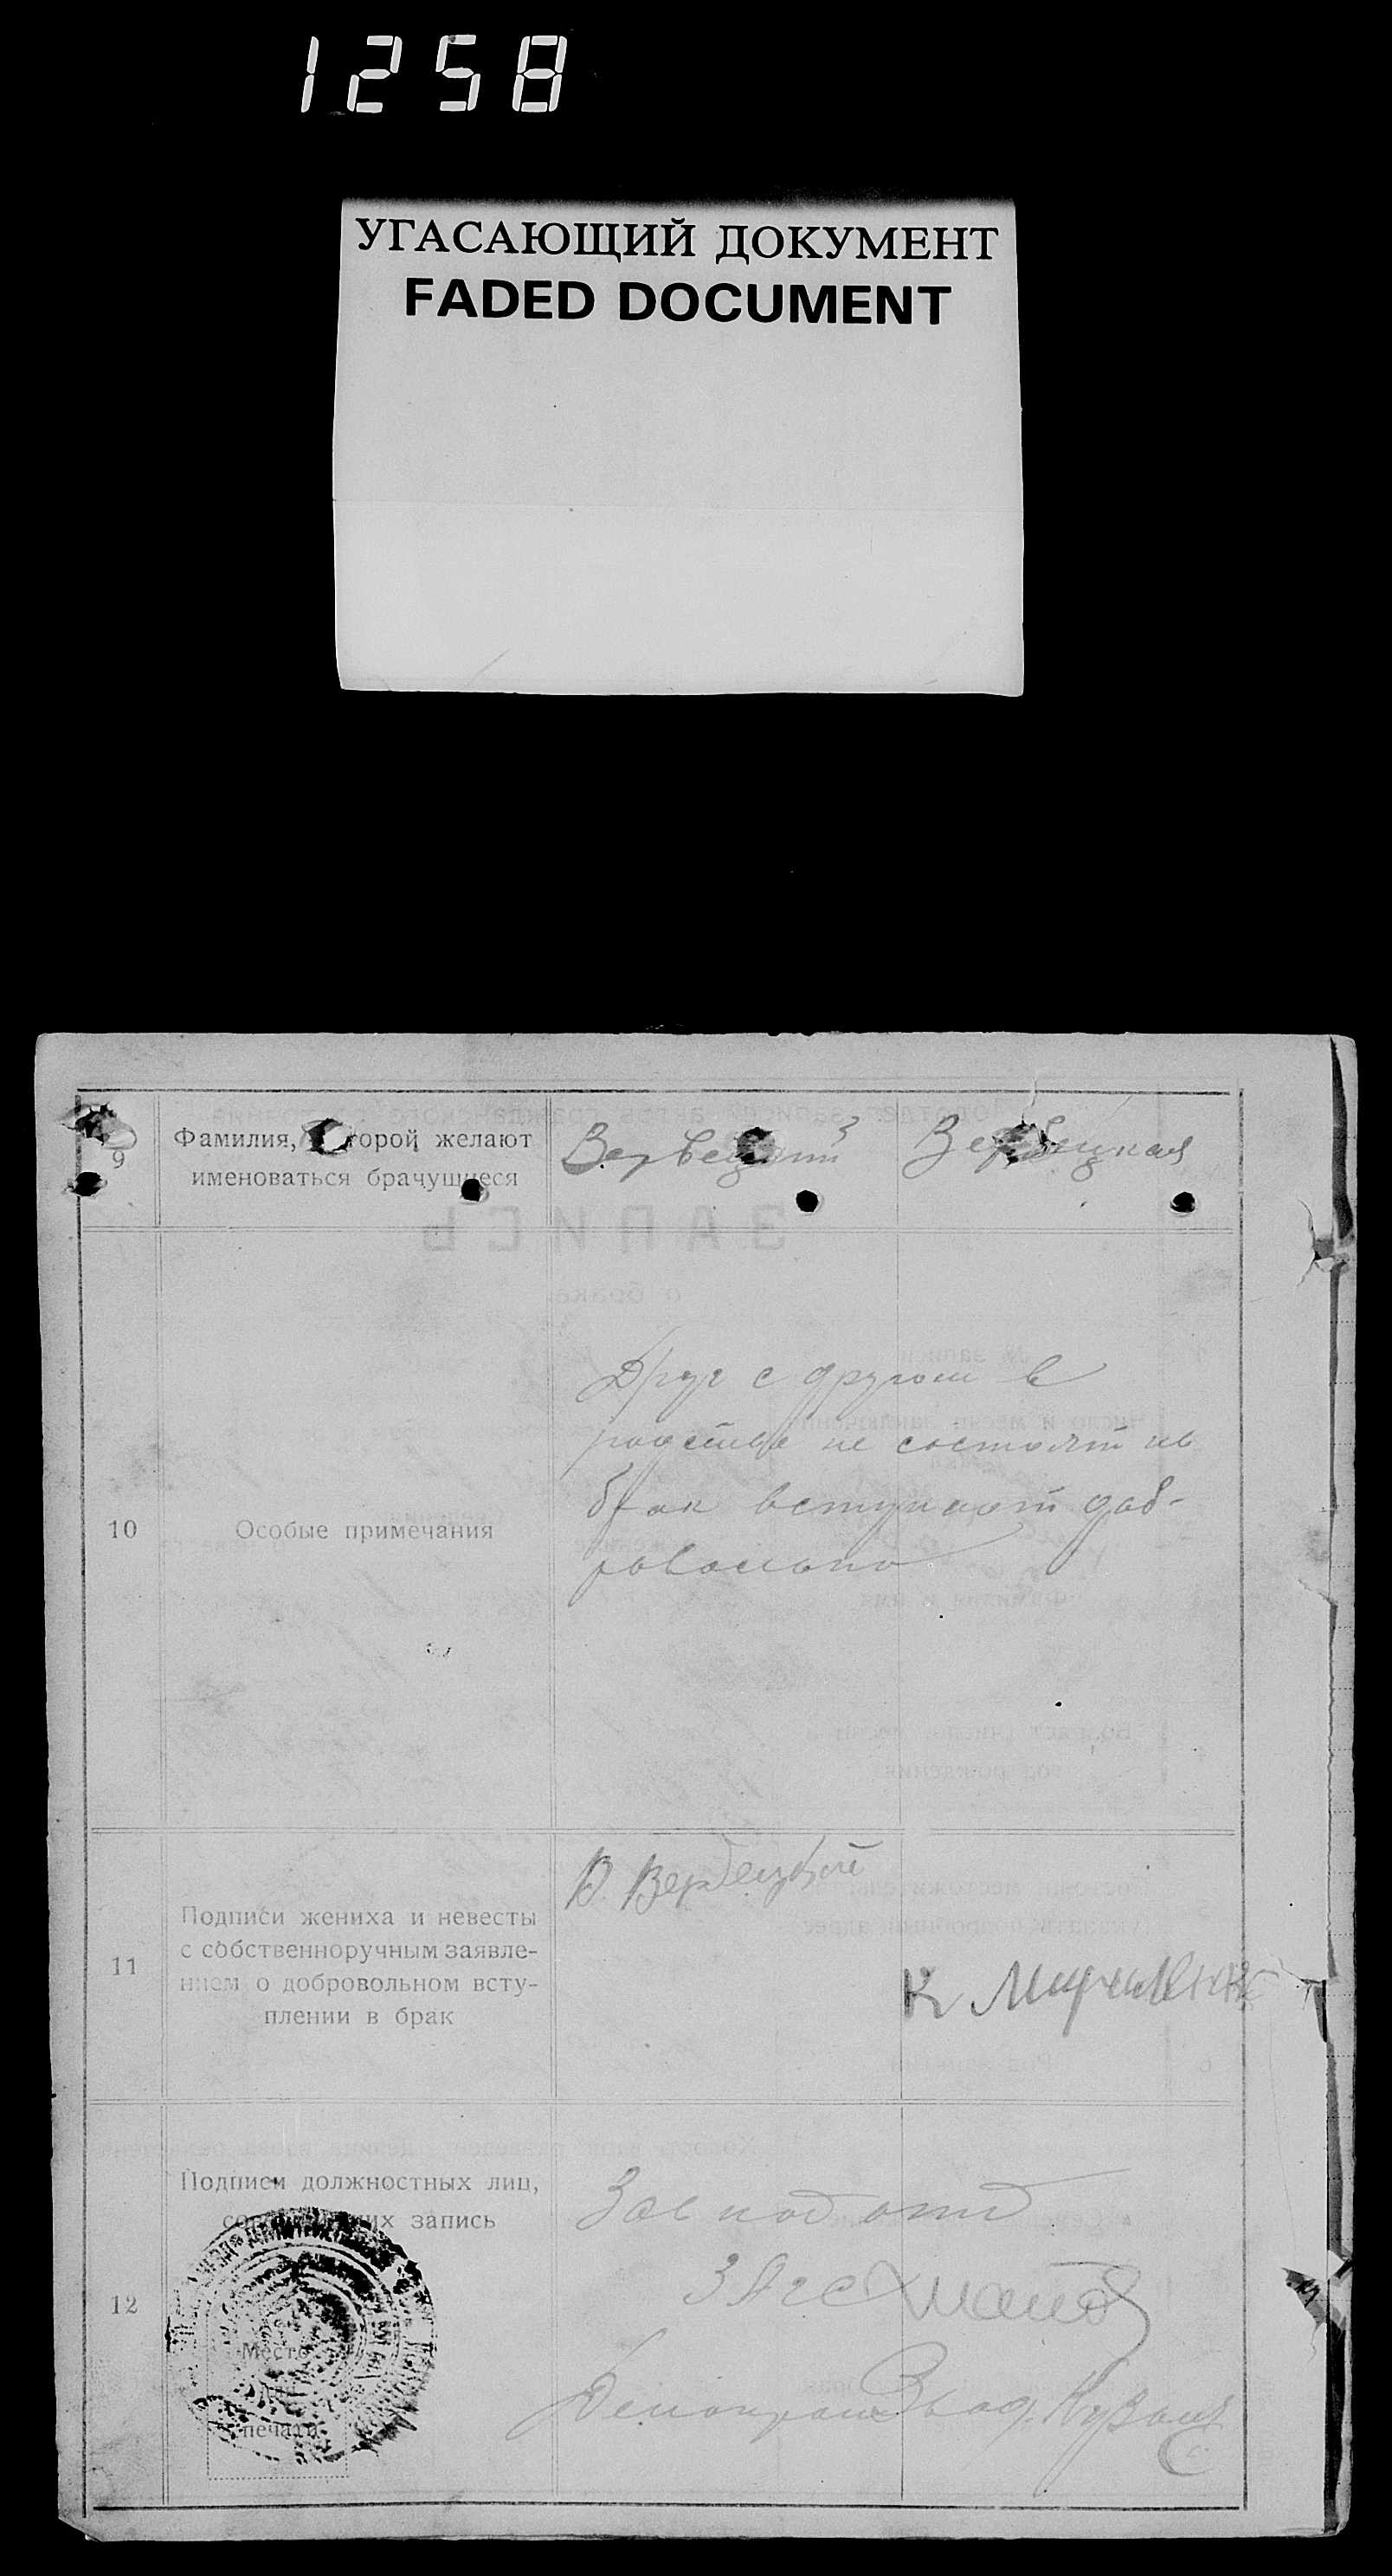 1258
УГАСАЮЩИЙ ДОКУМЕНТ
FADED DOCUMENT
9
Фамилия, которой желают
именоваться брачущиеся
Вербецкий
Вербецкая
ЗАПИСЬ
о браке
10
Особые примечания
Друг с другом в
родстве не состоят и в
брак вступают доб-
ровольно
11
Подписи жениха и невесты
с собственноручным заявле-
нием о добровольном всту-
плении в брак
В. Вербецкий
К
12
Подписи должностных лиц,
запись
Место
для
печати
Зав под отд
ЗАГС
Делопроизвод